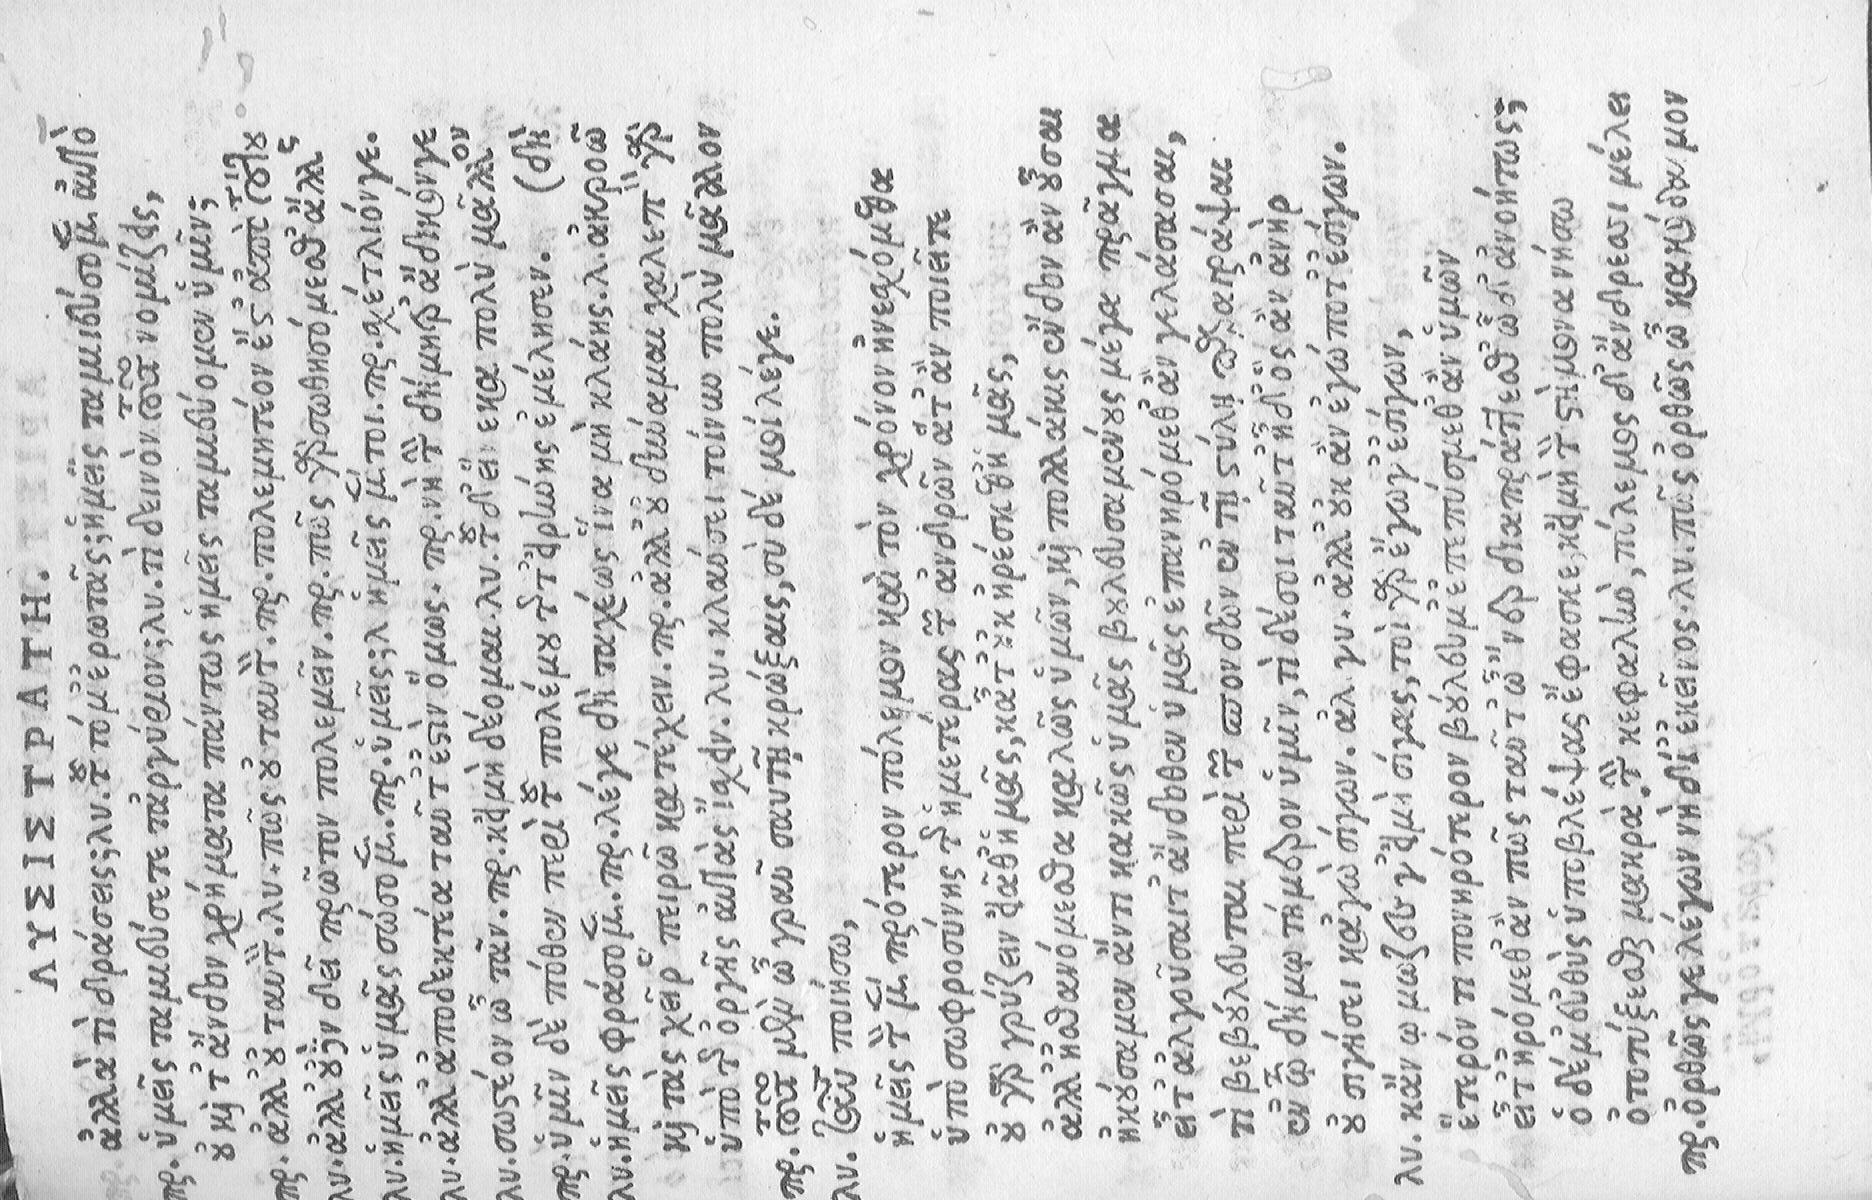 ΛΥΣΙΣΤΡΑΤΗ.
ἀλλὰ τί δράσεις; λυ. τοῦτό μ' ἐρωτᾷς; ἡμεῖς ταμιεύσομεν αὐτὸ
πρ. ὑμεῖς ταμιεύσετε τἀργύριον; λυ. τί δεινὸν τοῦτο νομίζεις,
οὐ καὶ τἄνδον χρήματα πάντως ἡμεῖς ταμιεύομεν ὑμῖν;
πρ. ἀλλ' οὐ ταυτὸν. λυ. πῶς οὐ ταυτὸν. πρ. πολεμητέον ἔστ' ἀπὸ τούτου
λυ. ἀλλ' οὐδὲν δεῖ πρῶτον πολεμεῖν. πρ. πῶς γὰρ σωθησόμεσθ' ἄλλως
λυ. ἡμεῖς ὑμᾶς σώσομεν. πρ. ὑμεῖς; λ ἡμεῖς μέντοι. πρ. σχέτλιόν γε.
λυ. ἀλλ' ἀποδεκτέα ταῦτ' ἐστὶν ὅμως. πρ. νὴ τὴν δήμητρ' ἄδικόν γε
λυ. σωστέον ὦ τᾶν. πρ. κεἰ μὴ δέομαι. λυ. τοῦδ' εἵνεκα πολὺ μᾶλλον
πρ. ὑμῖν δὲ πόθεν περὶ τοῦ πολέμου τῆς τ' εἰρήνης ἐμέλησεν. (δὴ
λυ. ἡμεῖς φράσομεν. πρ. λέγε δὴ ταχέως ἵνα μὴ κλάῃς. λ. ἀκροῶ
καὶ τὰς χεῖρας πειρῶ κατέχειν. πρ. ἀλλ' οὐ δύναμαι χαλεπὸν γὰρ
ὑπὸ τῆς ὀργῆς αὐτὰς ἴσχειν. λυ. κλαύσει τοίνυν πολὺ μᾶλλον
πρ. τοῦτο μὲν ὦ γραῦ σαυτῇ κρώξαις, σὺ δέ μοι λέγε.
λυ. ταῦτα ποιήσω,
ἡμεῖς τὸν μὲν πρότερον πόλεμον καὶ τὸν χρόνον ἠνεσχόμεθα
ὑπὸ σωφροσύνης τῆς ἡμετέρας τῶν ἀνδρῶν ἅττ' ἂν ποιεῖτε
οὐ γὰρ γρύζειν εἰᾶθ' ἡμᾶς, κᾆτ' οὐκ ἠρέσκεθ' ἡμᾶς,
ἀλλ' ᾐσθανόμεσθα καλῶς ὑμῶν, καὶ πολλάκις ἔνδον ἂν οὖσαι
ἠκούσαμεν ἄν τι κακῶς ὑμᾶς βουλευσαμένους μέγα πρᾶγμα
εἶτ' ἀλγοῦσαι τἄνδοθεν ὑμᾶς ἐπανηρόμεθ' ἂν γελάσασαι,
τί βεβούλευται περὶ τῶν σπονδῶν ἐν τῇ στύλῃ παραγράψαι
ἐν τῷ δήμῳ τήμερον ὑμῖν, τί δέ σοι ταῦτ' ἦ δ' ὃς ἂν ἀνὴρ
οὐ σιγήσει κἀγὼ σίγων. ἀλ γυ. ἀλλ' οὐκ ἂν ἐγώ ποτ' ἐσίγων.
λυ. κἂν ᾤμωζές γ' εἰ μὴ σίγας, τοὶ γὰρ ἔγωγ' ἐσίγων,
ἕτερόν τι πονηρότερον βούλευμ' ἐπεπύσμεθ' ἂν ὑμῶν
εἶτ' ἠρόμεθ' ἂν πῶς ταῦτ' ὦ 'νερ διαπράττεσθ' ὧδ' ἀνοήτως;
ὁ δέ μ' εὐθὺς ὑποβλέψας ἔφασκε, κεἰ μὴ τὸν στήμονα νήσω
ὀτοτύξεσθαι μακρὰ τὴν κεφαλὴν, πόλεμος δ' ἄνδρεσι μέλει
πρ. ὀρθῶς γε λέγων νὴ δί' ἐκεῖνος. λυ. πῶς ὀρθῶς ὦ κακόδαιμον